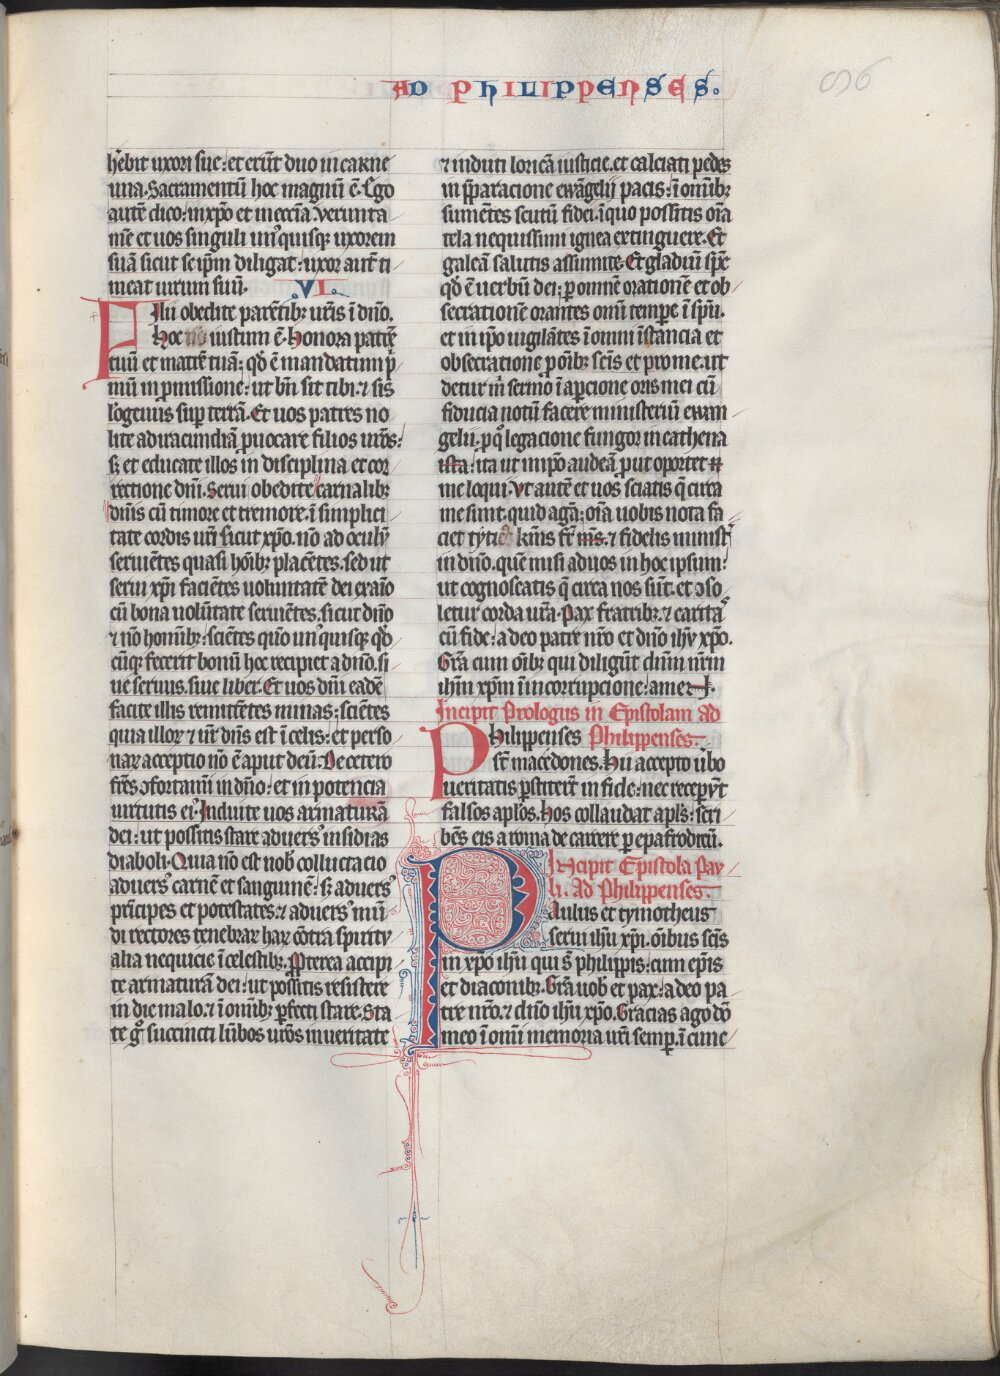 AD PHILIPPENSES.
696
hēbit uxori sue: et erūt duo in carne
una. Sacramentū hoc magnū ē. Ego
autē dico: in xp̄o et in eccīa. Verunta
mē et uos singuli un'quisq; uxorem
suā sicut se ip̄m diligat: uxor aut̄ ti
meat uirum suū. VI.
Filii obedite parētib; ur̄is ī dn̄o.
hoc iustum ē. Honora patrē
tuū et matrē tuā: qđ ē mandatum p̄
mū in p̄missione: ut bn̄ sit tibi: ⁊ sis
lōgeuus suꝑ terrā. Et uos patres no
lite ad iracundiā ꝓuocare filios ur̄os:
sꝫ et educate illos in disciplina et cor
rectione dn̄i. Serui obedite carnalib;
dn̄is cū timore et tremore. ī simplici
tate cordis ur̄i sicut xp̄o. nō ad oculū
seruiētes quasi hōib; placētes. sed ut
serui xp̄i faciētes uoluntatē dei ex aīo
cū bona uolūtate seruiētes. sicut dn̄o
⁊ nō hominib;: sciētes quō un'quisq; qđ
cūq; fecerit bonū hoc recipiet a dn̄o. si
ue seruus. siue liber. Et uos dn̄i eadē
facite illis remittētes minas: sciētes
quia illoꝝ ⁊ ur̄ dn̄s est ī celis: et perso
naꝝ acceptio nō ē aput deū. De cetero
fr̄es ↄfortamī in dn̄o: et in potencia
uirtutis ei'. Induite uos armaturā
dei: ut possitis stare aduers' insidias
diaboli. Quia nō est uob̄ colluctacio
aduers' carnē et sanguinē: sꝫ aduers'
pri̅cipes et potestates: ⁊ aduers' mū
di rectores tenebraꝝ haꝝ cōtra spirity
alia nequicie ī celestib;. Propterea accipi
te armaturā dei: ut possitis resistere
in die malo. ⁊ ī omīb; ꝑfecti stare. Sta
te gͦ succincti lūbos ur̄os in ueritate
⁊ induti loricā iusticie. et calciati pedes
in p̄paracione ewāgelij pacis: ī omīb;
sumētes scutū fidei. ī quo possitis oīa
tela nequissimi ignea extinguere. Et
galeā salutis assumite. Et gladiū sp̄c
qđ ē uerbū dei: ꝑ omnē orationē et ob
secrationē orantes omī tempe ī sp̄u.
et in ip̄o uigilātes ī omni īstancia et
obsecratione ꝓ oīb; sc̄is et pro me. ut
detur m̄ sermo ī aꝑcione oris mei cū
fiducia notū facere ministeriū ewan
gelii. ꝓ q̄ legacione fungor in cathena
ista: ita ut in ip̄o audeā prout oportet
me loqui. Vt autē et uos sciatis q̄ circa
me sunt. quid agā: oīa uobis nota fa
ciet kmīs fr̄ ⁊ fidelis minist̄
in dn̄o. quē misi ad uos in hoc ipsum:
ut cognoscatis q̄ circa nos sūt. et ↄso
letur corda ur̄a. Pax fratrib; ⁊ caritas
cū fide: a deo patre nr̄o et dn̄o ih̄u xp̄o.
Grā cum oīb; qui diligūt dn̄m nr̄m
ih̄m xp̄m ī incorrupcione: amen.
Incipit Prologus in Epistolam ad
Philippenses Philippenses.
st̄ macedones. hii accepto ūbo
ueritatis ꝑstiter̄t in fide: nec receper̄t
falsos apl̄os. hos collaudat apl̄s: scri
bēs eis a roma de carcere ꝑ epafroditū.
Incipit Epistola Pau
li. ad Philippenses.
Paulus et tymotheus
serui ih̄u xp̄i. oībus sc̄is
in xp̄o ih̄u qui s̄ philippis: cum ep̄is
et diaconib;. Grā uob̄ et pax: a deo pa
tre nr̄o. ⁊ dn̄o ih̄u xp̄o. Gracias ago dō
meo ī omī memoria ur̄i semꝑ. ī cunc